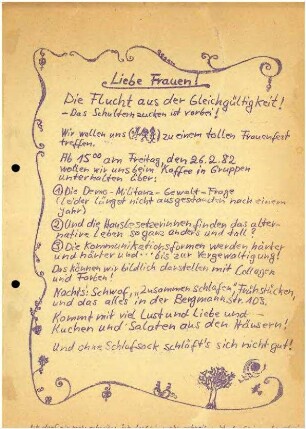 Liebe Frauen!
Die Flucht aus der Gleichgültigkeit!
- Das Schulternzucken ist vorbei!
Wir wollen uns zu einem tollen Frauenfest
treffen.
Ab 15⁰⁰ am Freitag, den 26.2.82
wollen wir uns beim Kaffee in Gruppen
unterhalten über:
① Die Demo-Militanz-Gewalt-Frage
(leider längst nicht ausgestanden nach einem
Jahr)
② Und die Hausbesetzerinnen finden das alter-
native Leben so ganz anders und toll?
③ Die Kommunikationsformen werden härter
und härter und... bis zur Vergewaltigung!
Das können wir bildlich darstellen mit Collagen
und Farben!
Nachts: Schwof, "zusammen schlafen" Frühstücken,
und das alles in der Bergmannstr. 103.
Kommt mit viel Lust und Liebe und
Kuchen und Salaten aus den Häusern!
Und ohne Schlafsack schläft's sich nicht gut!